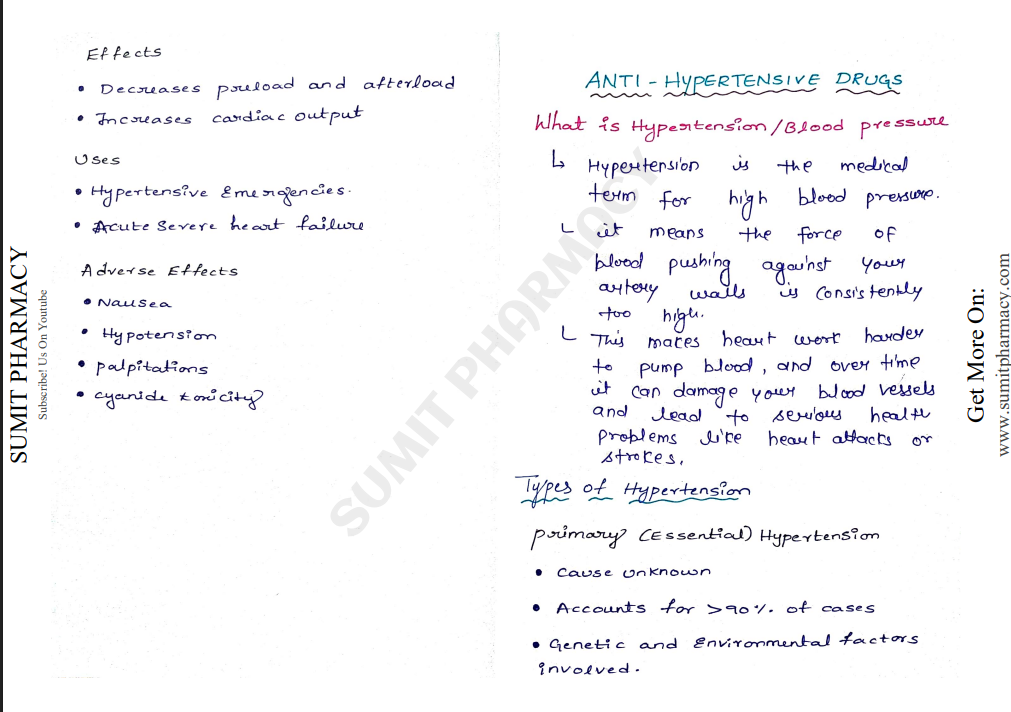 Effects
• Decreases preload and afterload
• Increases cardiac output
Uses
• Hypertensive Emergencies.
• Acute Severe heart failure
Adverse Effects
• Nausea
• Hypotension
• palpitations
• cyanide toxicity
ANTI-HYPERTENSIVE DRUGS
What is Hypertension/Blood pressure
↳ Hypertension is the medical
term for high blood pressure.
↳ it means the force of
blood pushing against your
artery walls is consistently
too high.
↳ This makes heart work harder
to pump blood, and over time
it can damage your blood vessels
and lead to serious health
problems like heart attacks or
strokes.
Types of Hypertension
primary (Essential) Hypertension
• Cause unknown
• Accounts for >90% of cases
• Genetic and Environmental factors
involved.
SUMIT PHARMACY
Subscribe! Us On Youtube
SUMIT PHARMACY
Get More On:
www.sumitpharmacy.com